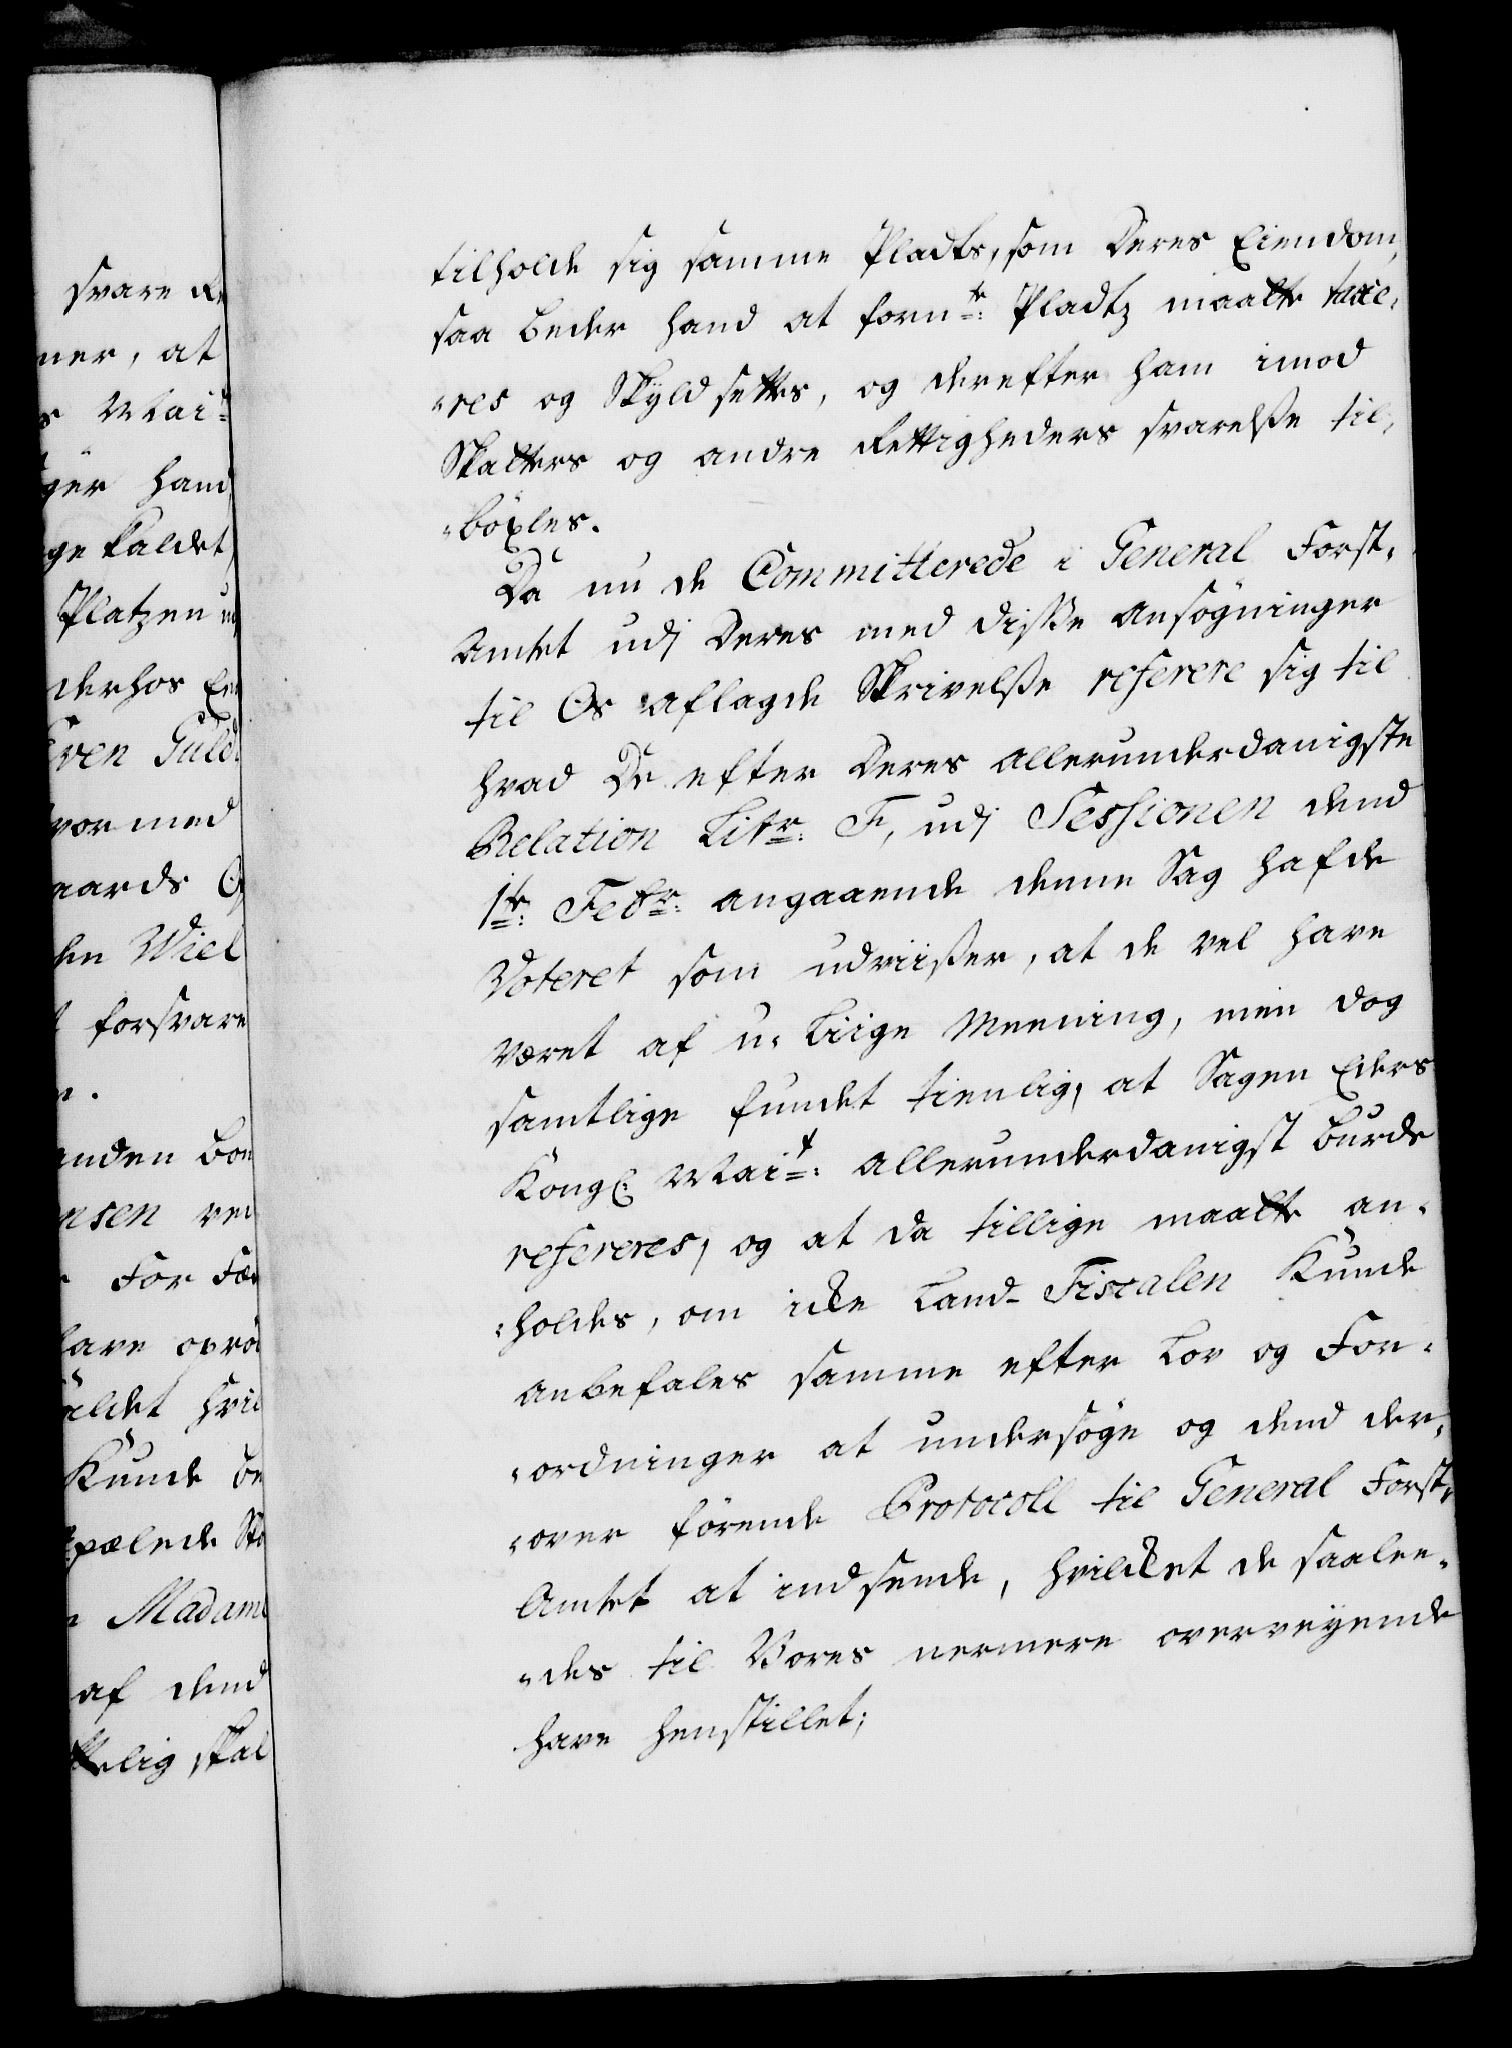 svare Re
ner, at
s Mai
ger hand
ge kaldet,
Platzen ud
derhos En
Even Guld
vormed
aards O
den Wiel
t forsvare
n.
anden bon
nsen ved
r For Fær
lave oprö
aldet hvil
Kunde be
pælede Ska
n Madame
af dend
kelig skal
tilholde sig samme Pladts, som deres Eiendom,
saa beder hand at forn:te Pladtz maatte taxe,
„res og Skyldsettes, og derefter ham imod
Skatters og andre Rettigheders svarelsse til,
„böxles.
Da nu de Committerede i General Forst,
Amtet udj deres med disse Ansögninger
til Os aflagde Skrivelsse referere sig til
hvad De efter deres allerunderdanigste
Relation Litr: F, udj Sessionen dend
1te: Febr: angaaende denne Sag hafde
Voteret som udviisser, at de vel have
været af u-liige Meening, men dog
samtlige fundet tienlig, at Sagen Eders
Kongl: Mai:t allerunderdanigst burde
refereres, og at da tillige maatte an,
„holdes, om icke Land-Fiscalen Kunde
anbefales samme efter Lov og For,
„ordninger at undersöge og dend der,
„over förende Protocoll til General Forst,
Amtet at indsende, hvilcket de saalee,
„des til Vores nermere overveyende
have henstillet;